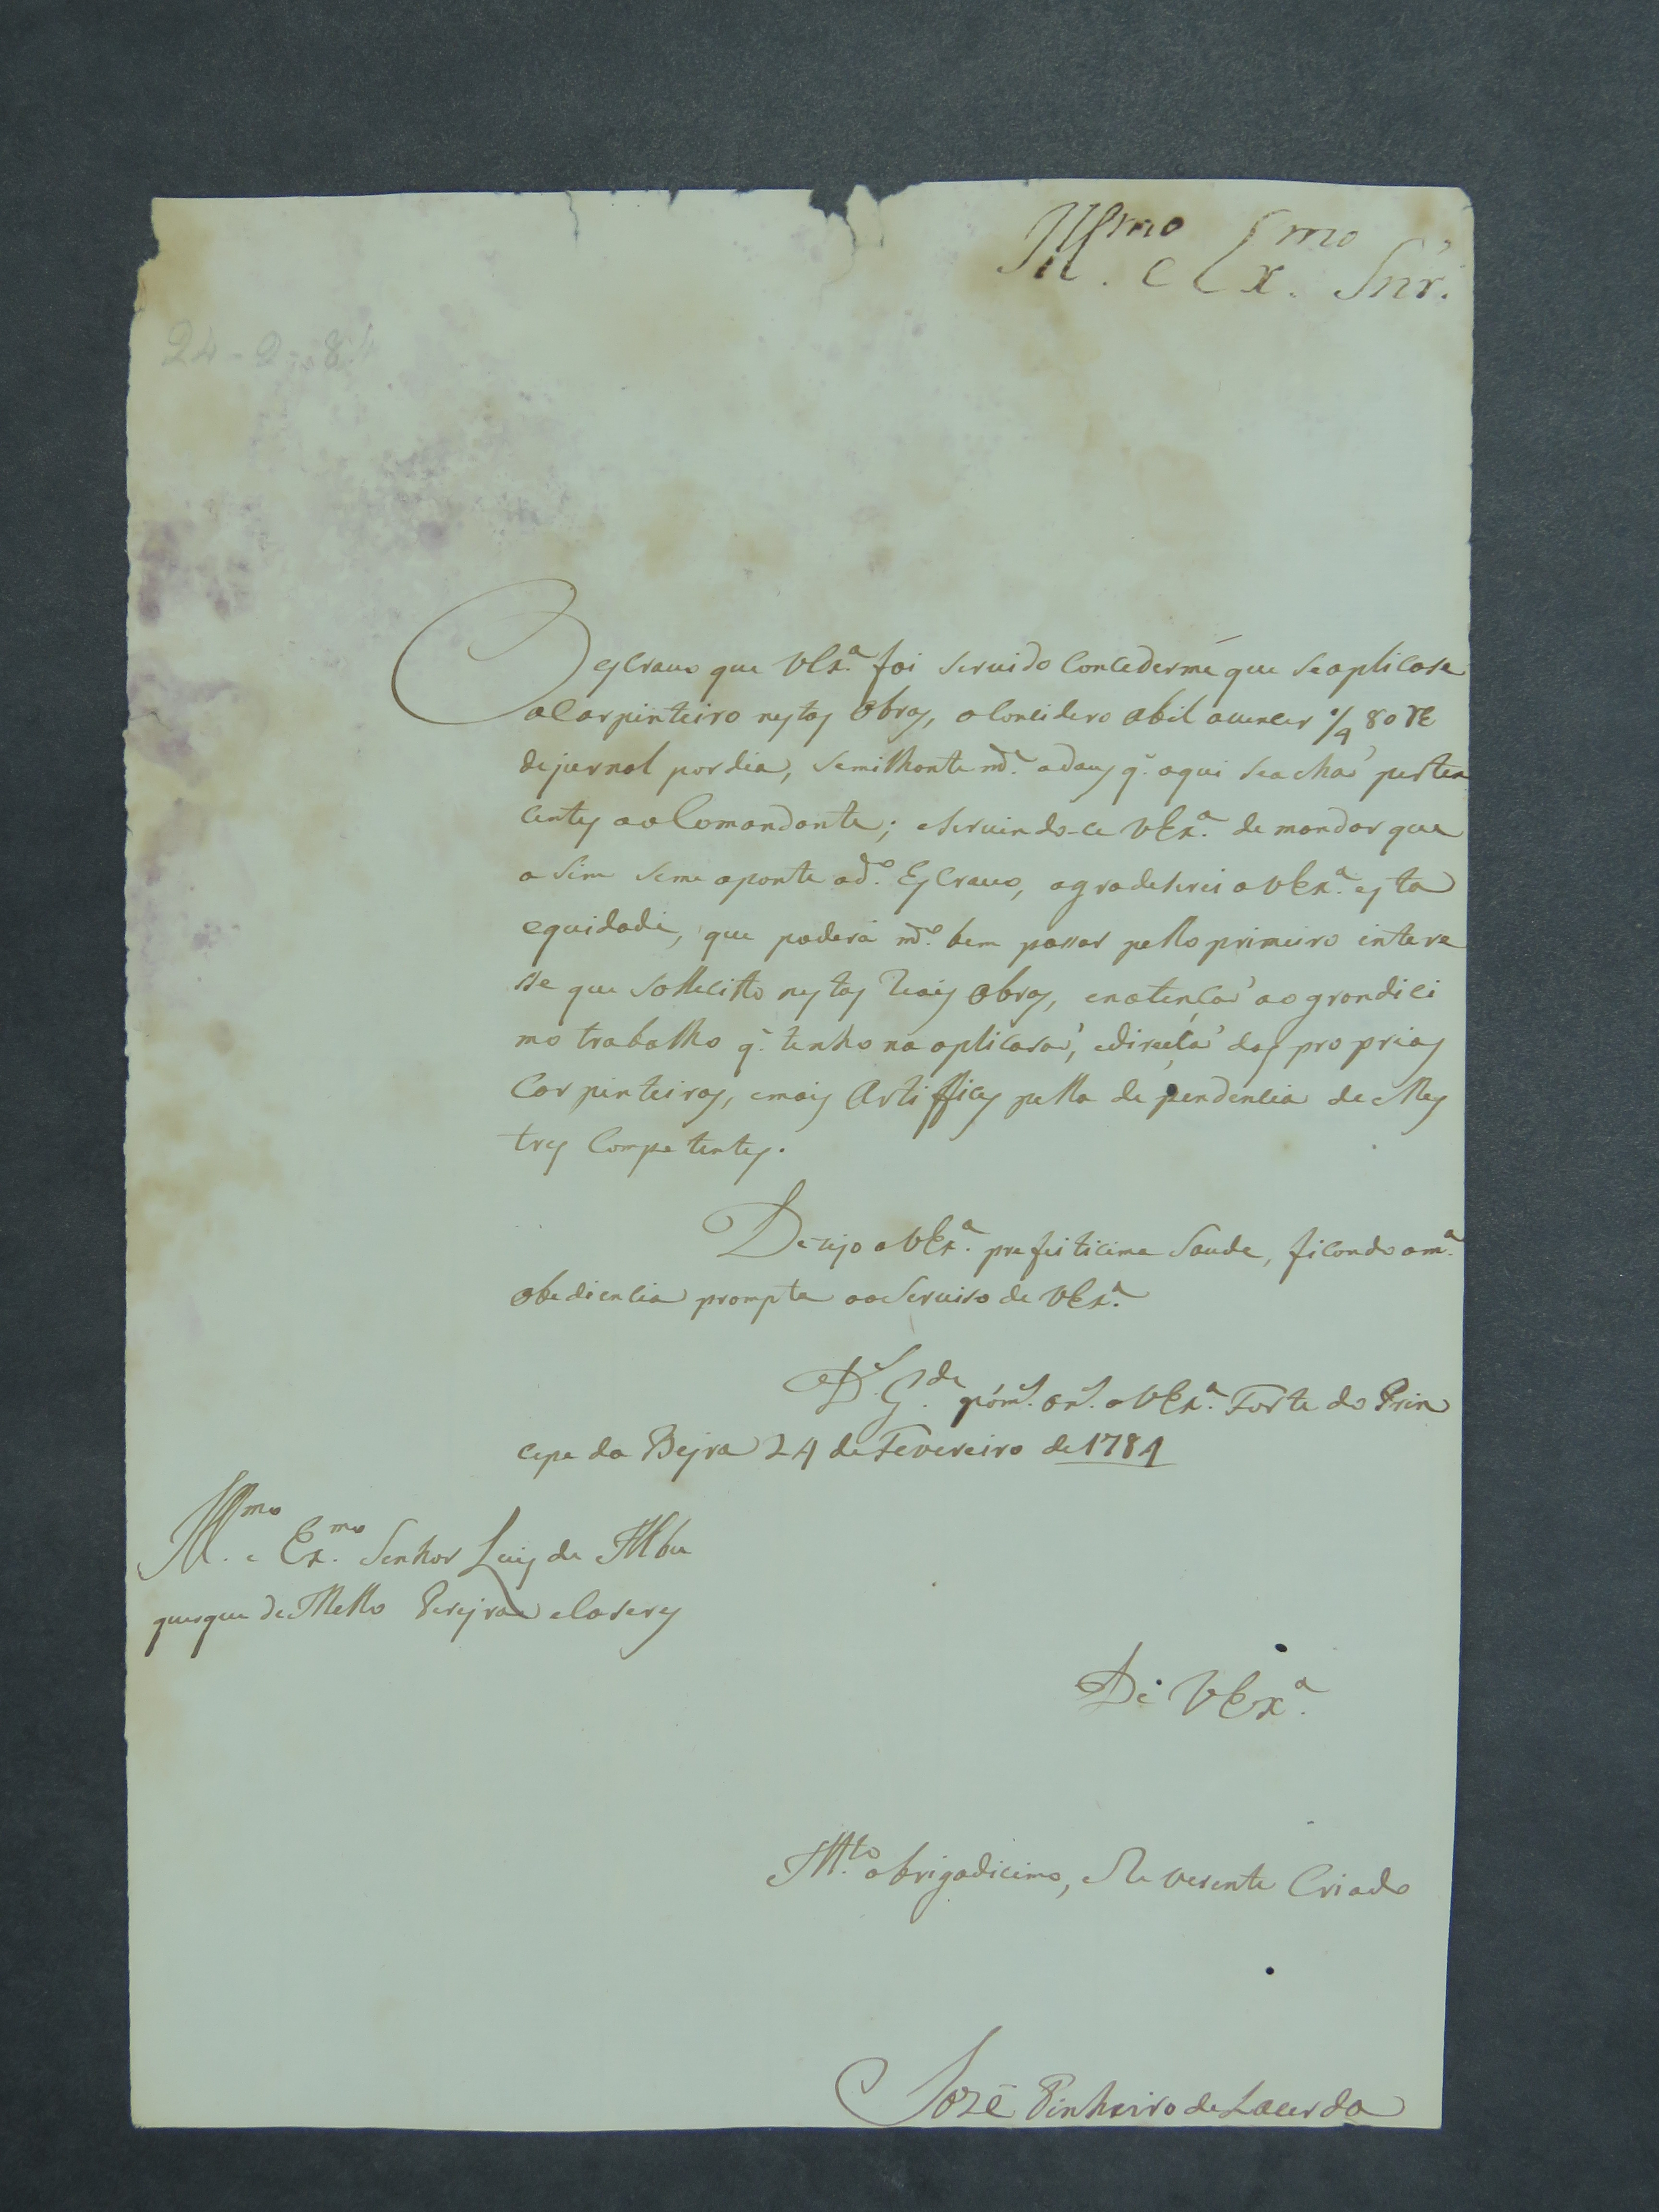 Ill.mo e Ex.mo Snr.
24-2-84
O esCravo que VEx.ª foi servido Concederme que se aplicase
a Carpinteiro nestas Obras, o Concidero abil a vencer 1/4 80 rs
de jurnal por dia, semilhante m.e a daus q. aqui se achaõ perten
centes ao Comandante; e servindo-ce VEx.ª de mandar que
a sim se me aponte ad.º EsCravo, agradeserei a VEx.ª esta
equidade, que poderá m.º bem passar pello primeiro intere
sse que sollecitto nestas Reais obras, en atençaõ ao grandici
mo trabalho q. tenho na aplicasaõ, e direçaõ das proprias
Carpinteiras, e mais Artiffices pella dependencia de Mes
tres Competentes.
Dezejo a VEx.ª prefeiticima Saude, ficando a m.ª
obediencia prompta ao Serviso de VEx.ª
D.s G.de p.r m.s an.s a VEx.ª Forte do Prin
cepe da Bejra 24 de Fevereiro de 1784
Ill.mo e Ex.mo Senhor Luis de Albu
querque de Mello Perejra e Caseres
De VEx.ª
M.to obrigadicimo, e Reverente Criado
Jozé Pinheiro de Lacerda